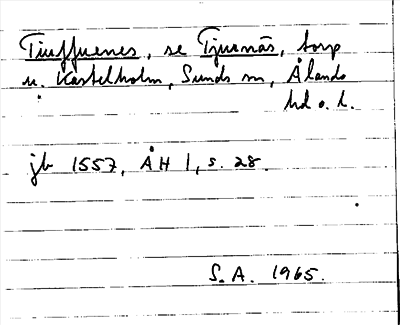 Tiuffuenes, se Tjurnäs, torp
u. Kastelholm, Sunds sn, Ålands
hd o. l.
jb 1557, ÅH 1, s. 28.
S. A. 1965.